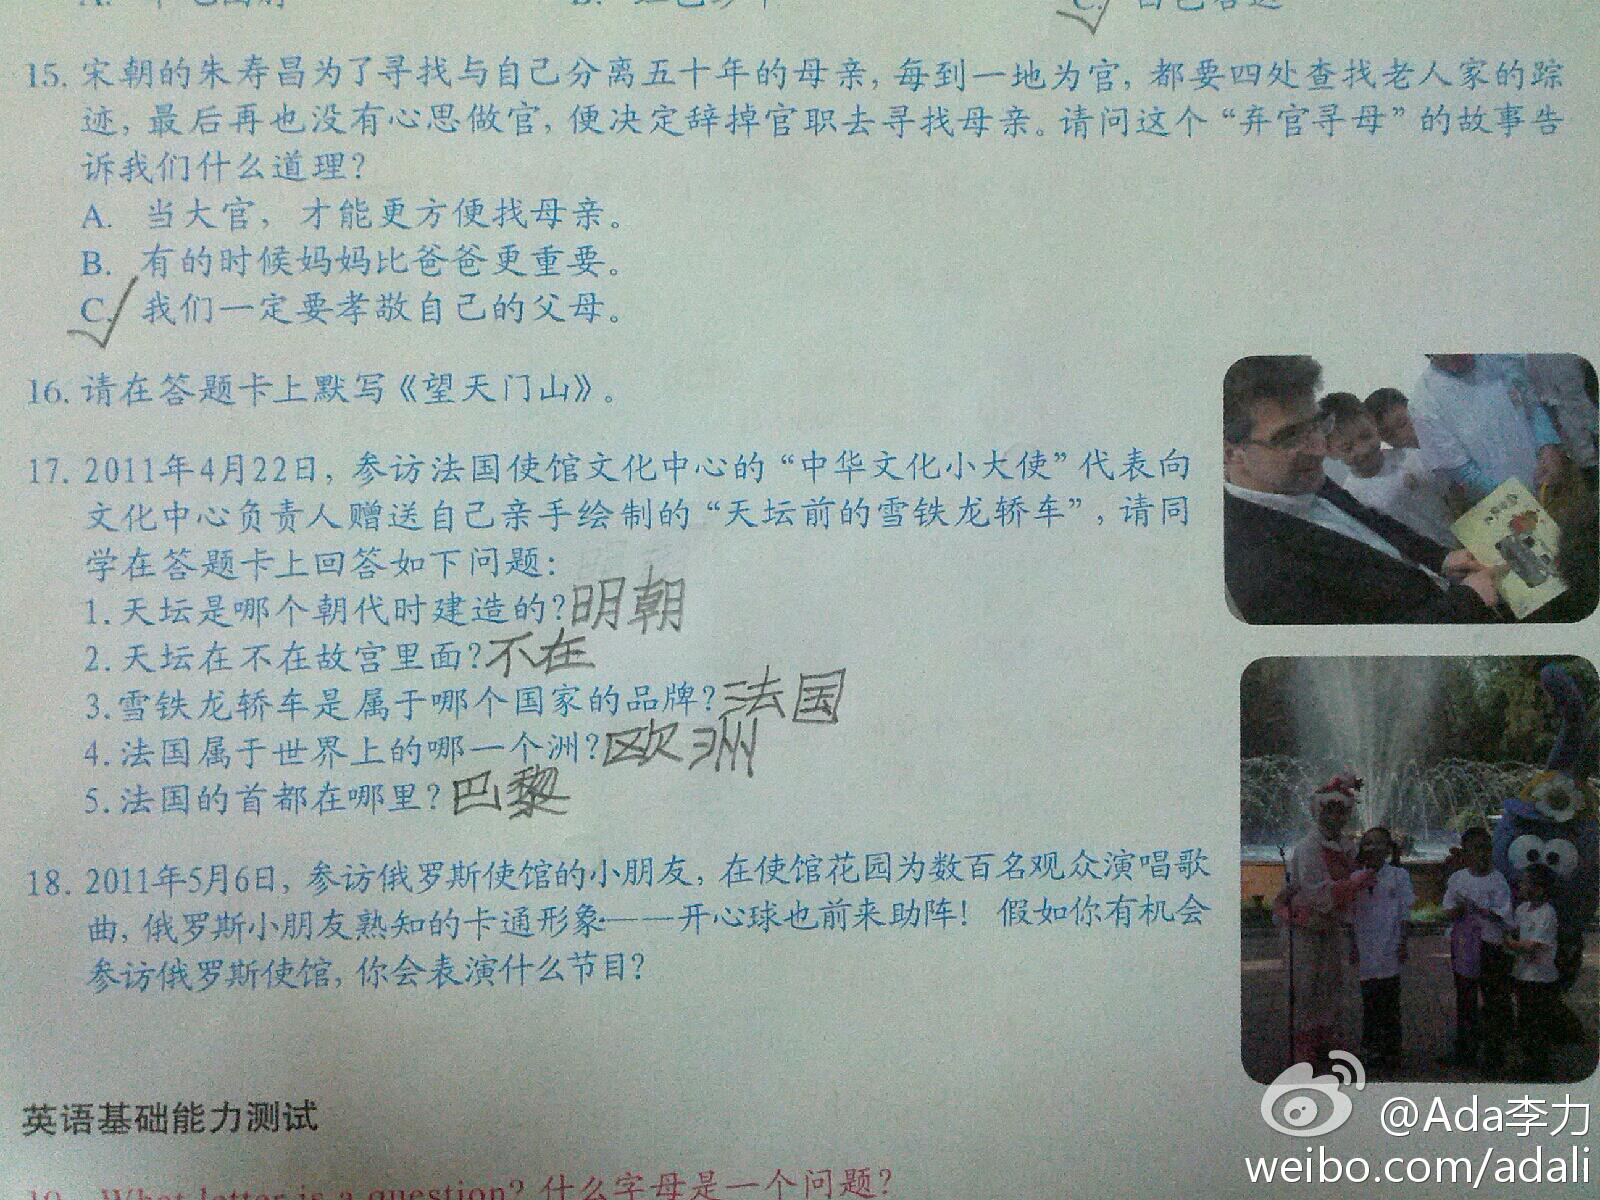 15. 宋朝的朱寿昌为了寻找与自己分离五十年的母亲，每到一地为官，都要四处查找老人家的踪
迹，最后再也没有心思做官，便决定辞掉官职去寻找母亲。请问这个“弃官寻母”的故事告
诉我们什么道理？
A. 当大官，才能更方便找母亲。
B. 有的时候妈妈比爸爸更重要。
C. 我们一定要孝敬自己的父母。
16. 请在答题卡上默写《望天门山》。
17. 2011年4月22日，参访法国使馆文化中心的“中华文化小大使”代表向
文化中心负责人赠送自己亲手绘制的“天坛前的雪铁龙轿车”，请同
学在答题卡上回答如下问题：
1.天坛是哪个朝代时建造的？明朝
2.天坛在不在故宫里面？不在
3.雪铁龙轿车是属于哪个国家的品牌？法国
4.法国属于世界上的哪一个洲？欧洲
5.法国的首都在哪里？巴黎
18. 2011年5月6日，参访俄罗斯使馆的小朋友，在使馆花园为数百名观众演唱歌
曲，俄罗斯小朋友熟知的卡通形象——开心球也前来助阵！假如你有机会
参访俄罗斯使馆，你会表演什么节目？
英语基础能力测试
19. What letter is a question? 什么字母是一个问题？
@Ada李力
weibo.com/adali